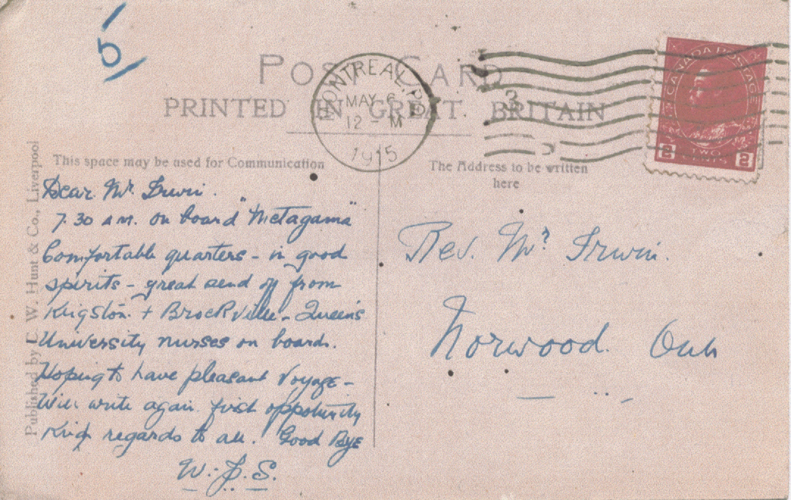 b
POST CARD
PRINTED IN GREAT BRITAIN
MONTREAL, P.Q.
MAY 6
12 - M
1915
3
CANADA POSTAGE
2 TWO CENTS 2
This space may be used for Communication
The Address to be written
here
Published by C. W. Hunt & Co., Liverpool
Dear Mr Irwin.
7.30 A.M. on board "Metagama"
Comfortable quarters - in good
spirits - great send off from
Kingston + Brockville - Queen's
University nurses on board.
Hoping to have pleasant voyage -
Will write again first oppotunity
Kind regards to all. Good Bye
W. J. S.
Rev. Mr Irwin.
Norwood. Ont